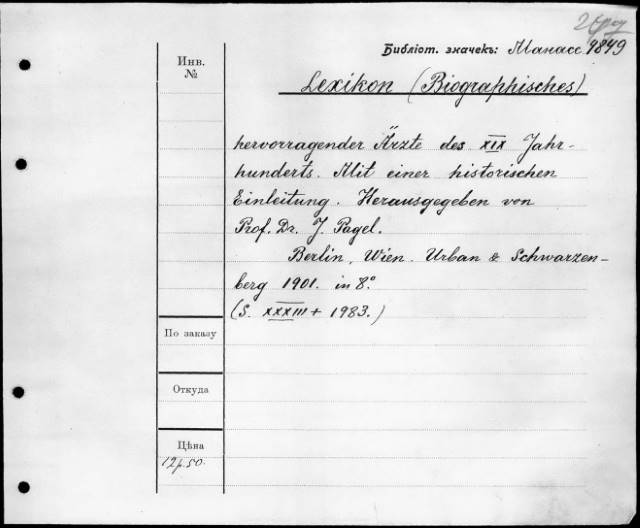 Библіот. значекъ: Манасс. 4849
Инв.
№
Lexikon (Biographisches)
hervorragender Ärzte des XIX Jahr-
hunderts. Mit einer historischen
Einleitung. Herausgegeben von
Prof. Dr. J. Pagel.
Berlin, Wien. Urban & Schwarzen-
berg 1901. in 8.°
(S. XXXIII + 1983.)
По заказу
Откуда
Цѣна
12р.50.